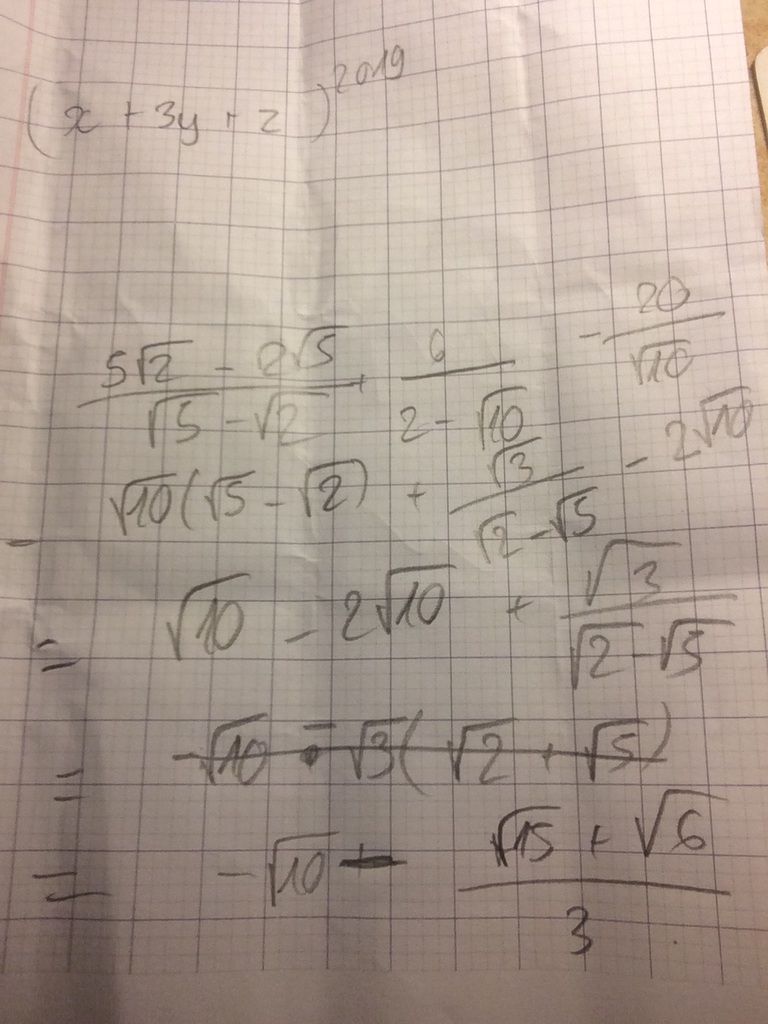 (x + 3y + z)^2019
(5√2 - 2√5)/(√5 - √2) + 6/(2 - √10) - 20/√10
√10(√5 - √2) + √3/(√2 - √5) - 2√10
= √10 - 2√10 + √3/(√2 - √5)
= -√10 - √3(√2 + √5)
= -√10 - (√15 + √6)/3